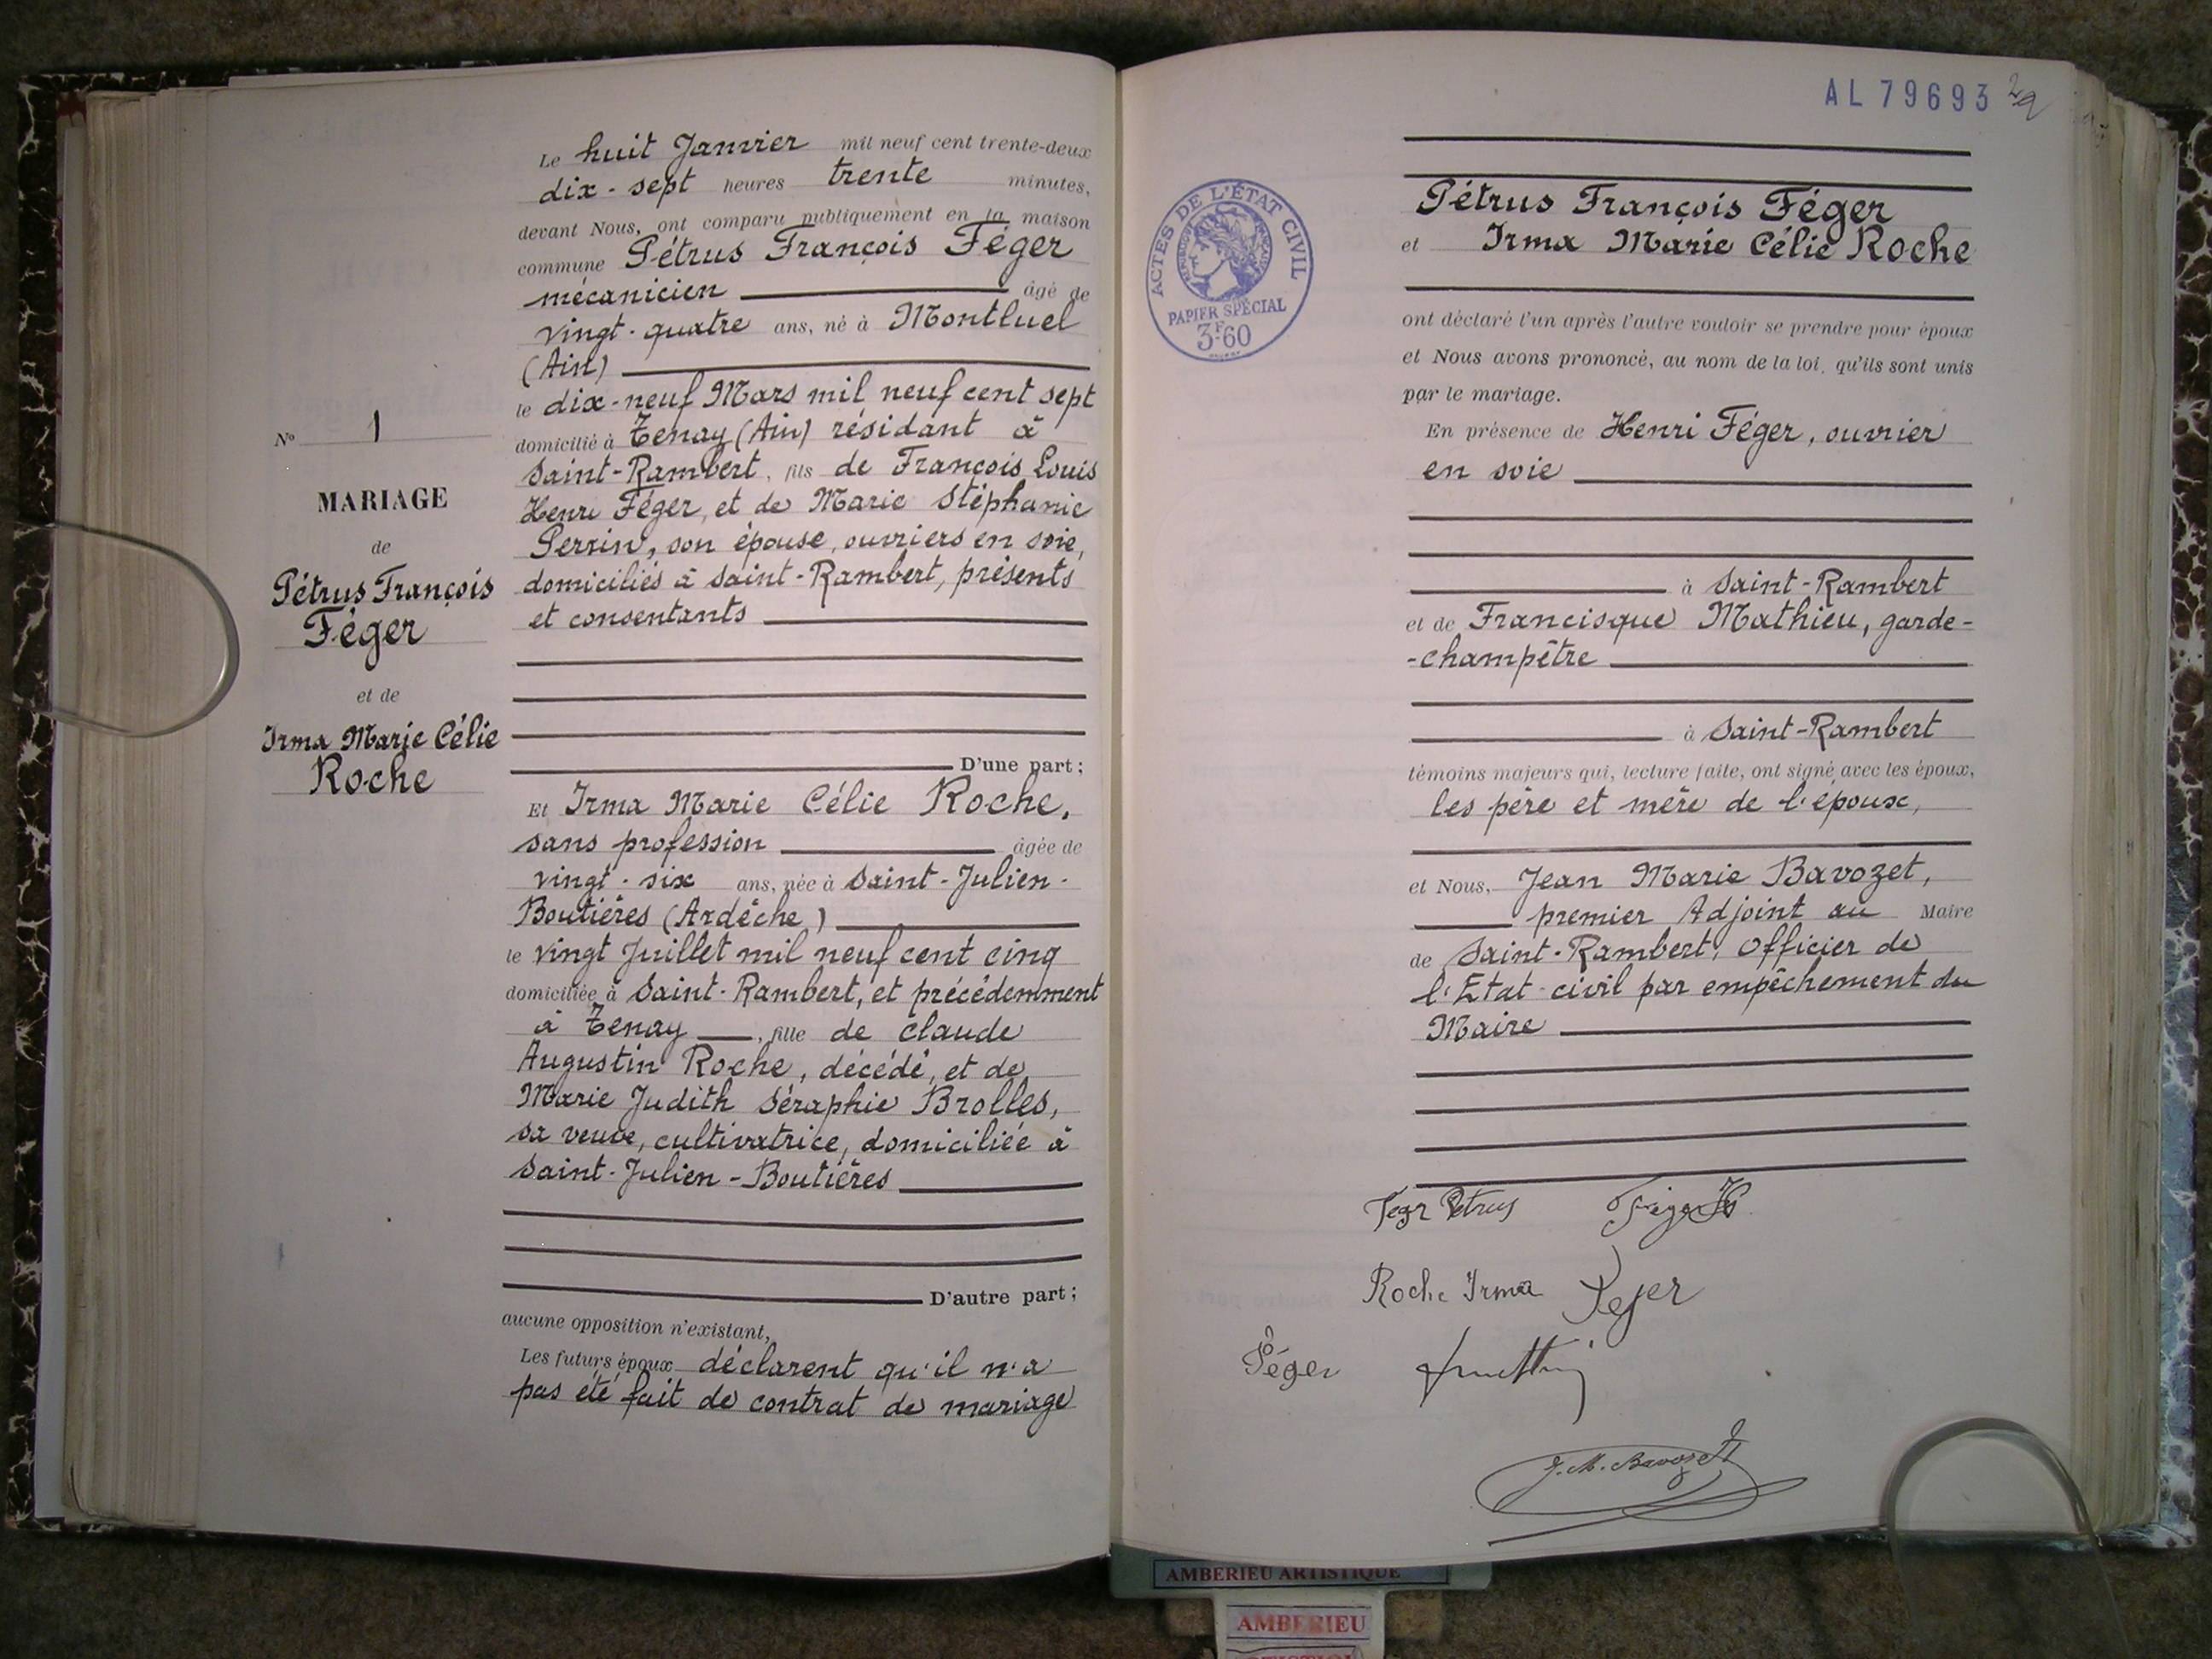 N° 1
MARIAGE
de
Pétrus François
Féger
et de
Irma Marie Célie
Roche
Le huit Janvier mil neuf cent trente-deux
dix-sept heures trente minutes,
devant Nous, ont comparu publiquement en la maison
commune Pétrus François Féger
mécanicien âgé de
vingt-quatre ans, né à Montluel
(Ain)
le dix-neuf Mars mil neuf cent sept
domicilié à Tenay (Ain) résidant à
Saint-Rambert, fils de François Louis
Henri Féger, et de Marie Stéphanie
Perrin, son épouse, ouvriers en soie,
domiciliés à Saint-Rambert, présents
et consentants
D'une part;
Et Irma Marie Célie Roche,
sans profession âgée de
vingt-six ans, née à Saint-Julien-
Boutières (Ardèche)
le vingt Juillet mil neuf cent cinq
domiciliée à Saint-Rambert, et précédemment
à Tenay, fille de Claude
Augustin Roche, décédé, et de
Marie Judith Séraphie Brolles,
sa veuve, cultivatrice, domiciliée à
Saint-Julien-Boutières
D'autre part;
aucune opposition n'existant,
Les futurs époux déclarent qu'il n'a
pas été fait de contrat de mariage
AL 79693
ACTES DE L'ÉTAT CIVIL
PAPIER SPÉCIAL
3F60
Pétrus François Féger
et Irma Marie Célie Roche
ont déclaré l'un après l'autre vouloir se prendre pour époux
et Nous avons prononcé, au nom de la loi, qu'ils sont unis
par le mariage.
En présence de Henri Féger, ouvrier
en soie
à Saint-Rambert
et de Francisque Mathieu, garde-
-champêtre
à Saint-Rambert
témoins majeurs qui, lecture faite, ont signé avec les époux,
les père et mère de l'époux,
et Nous, Jean Marie Bavozet,
premier Adjoint au Maire
de Saint-Rambert, Officier de
l'Etat-civil par empêchement du
Maire
Feger Petrus Féger H
Roche Irma Feger
Féger
J. M. Bavozet
AMBERIEU ARTISTIQUE
AMBERIEU